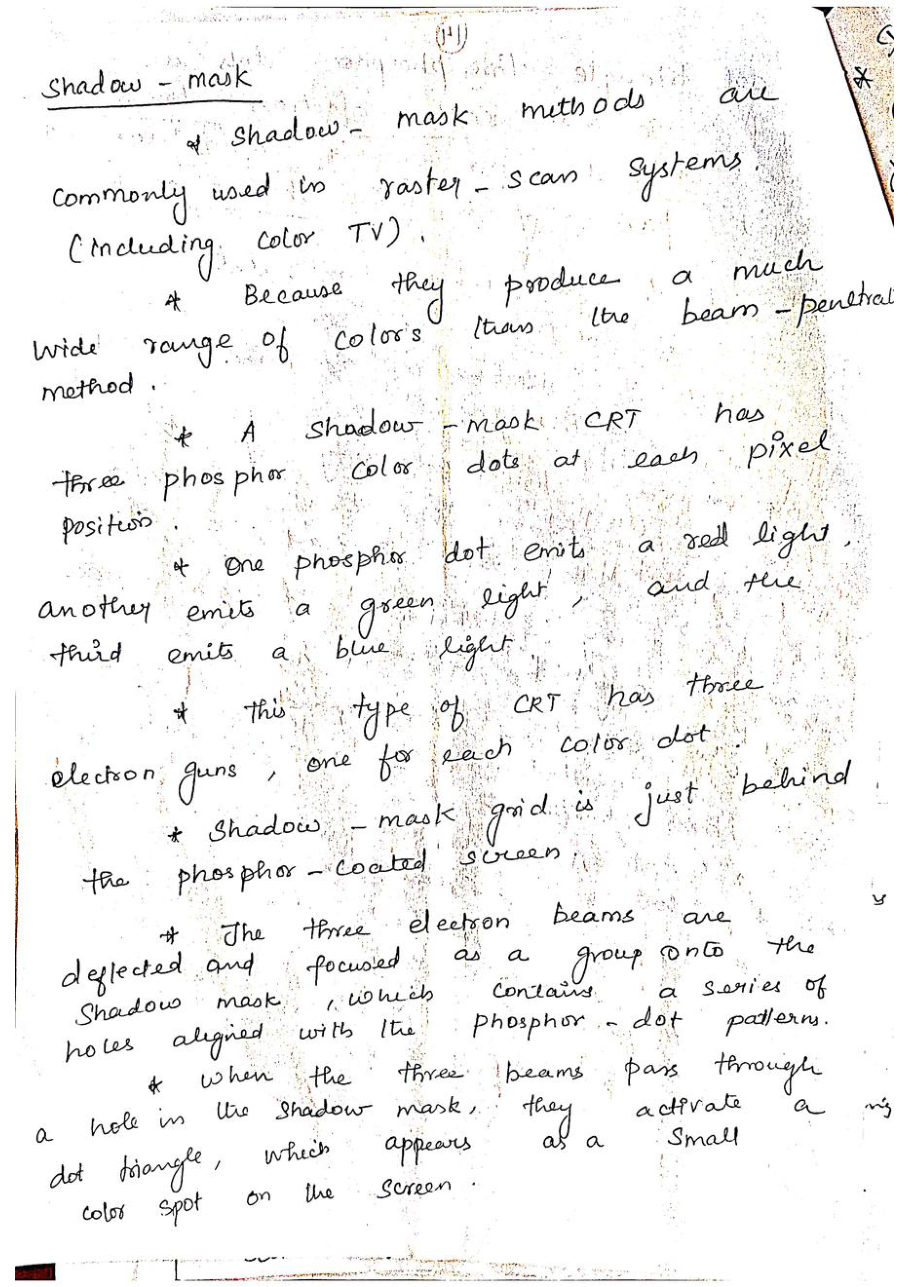 (14)
Shadow - mask
* Shadow - mask methods are
commonly used in raster - scan systems.
(including color TV).
* Because they produce a much
wide range of color's than the beam - penetrat
method.
* A Shadow - mask CRT has
three phosphor color dots at each pixel
position.
* One phosphor dot emits a red light,
another emits a green light, and the
third emits a blue light.
* this type of CRT has three
electron guns, one for each color dot.
* Shadow - mask grid is just behind
the phosphor - coated screen
* The three electron beams are
deflected and focused as a group onto the
Shadow mask, which contains a series of
holes aligned with the phosphor - dot patterns.
* when the three beams pass through
a hole in the Shadow mask, they activate a
dot triangle, which appears as a small
color spot on the screen.